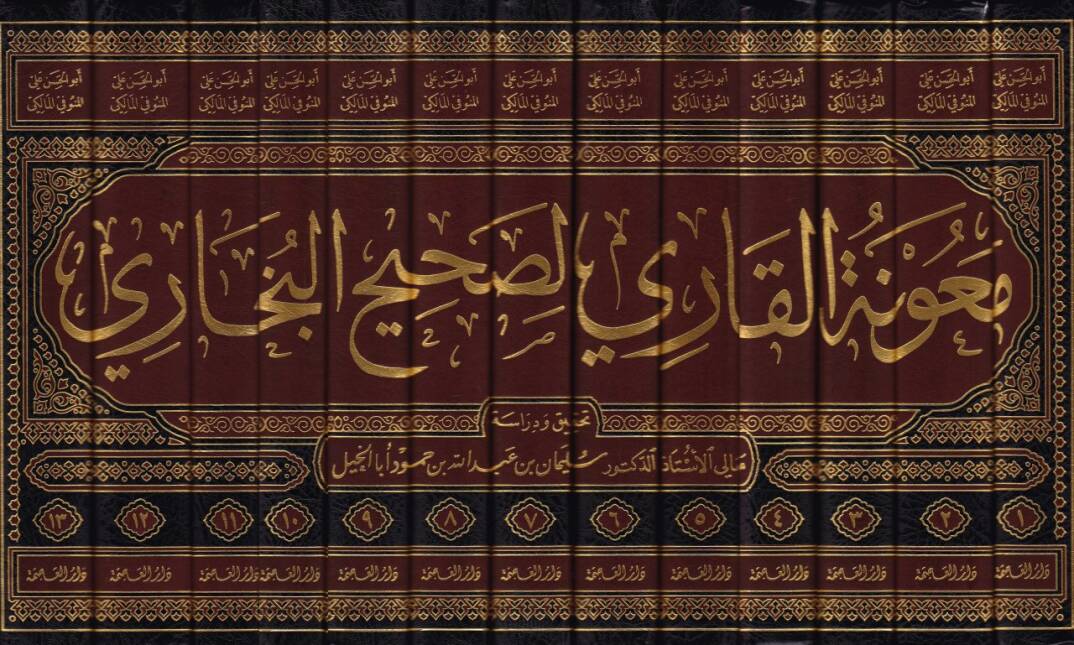 أبو الحسن علي أبو الحسن علي أبو الحسن علي أبو الحسن علي أبو الحسن علي أبو الحسن علي أبو الحسن علي أبو الحسن علي أبو الحسن علي أبو الحسن علي أبو الحسن علي أبو الحسن علي أبو الحسن علي
المنوفي المالكي المنوفي المالكي المنوفي المالكي المنوفي المالكي المنوفي المالكي المنوفي المالكي المنوفي المالكي المنوفي المالكي المنوفي المالكي المنوفي المالكي المنوفي المالكي المنوفي المالكي المنوفي المالكي
مَعُونَةُ القَارِي لِصَحِيحِ البُخَارِي
تحقيق ودراسة
معالي الأستاذ الدكتور سليمان بن عبد الله بن حمود أبا الخيل
١ ٢ ٣ ٤ ٥ ٦ ٧ ٨ ٩ ١٠ ١١ ١٢ ١٣
دار العاصمة دار العاصمة دار العاصمة دار العاصمة دار العاصمة دار العاصمة دار العاصمة دار العاصمة دار العاصمة دار العاصمة دار العاصمة دار العاصمة دار العاصمة